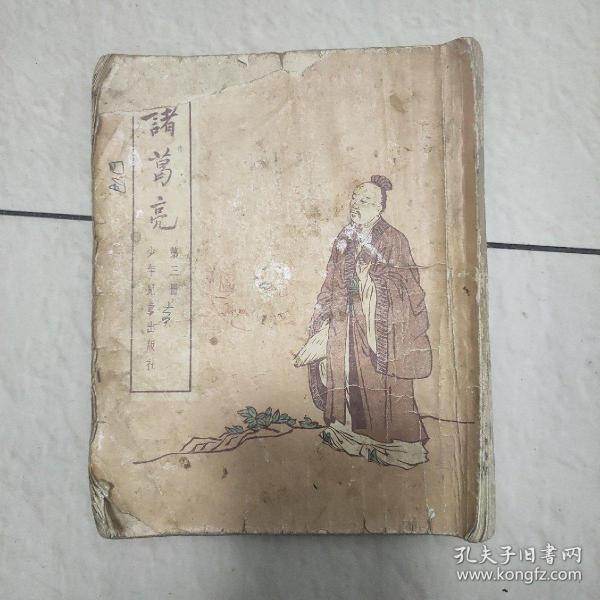 諸葛亮
第三冊
少年兒童出版社
孔夫子旧书网
www.kongfz.com